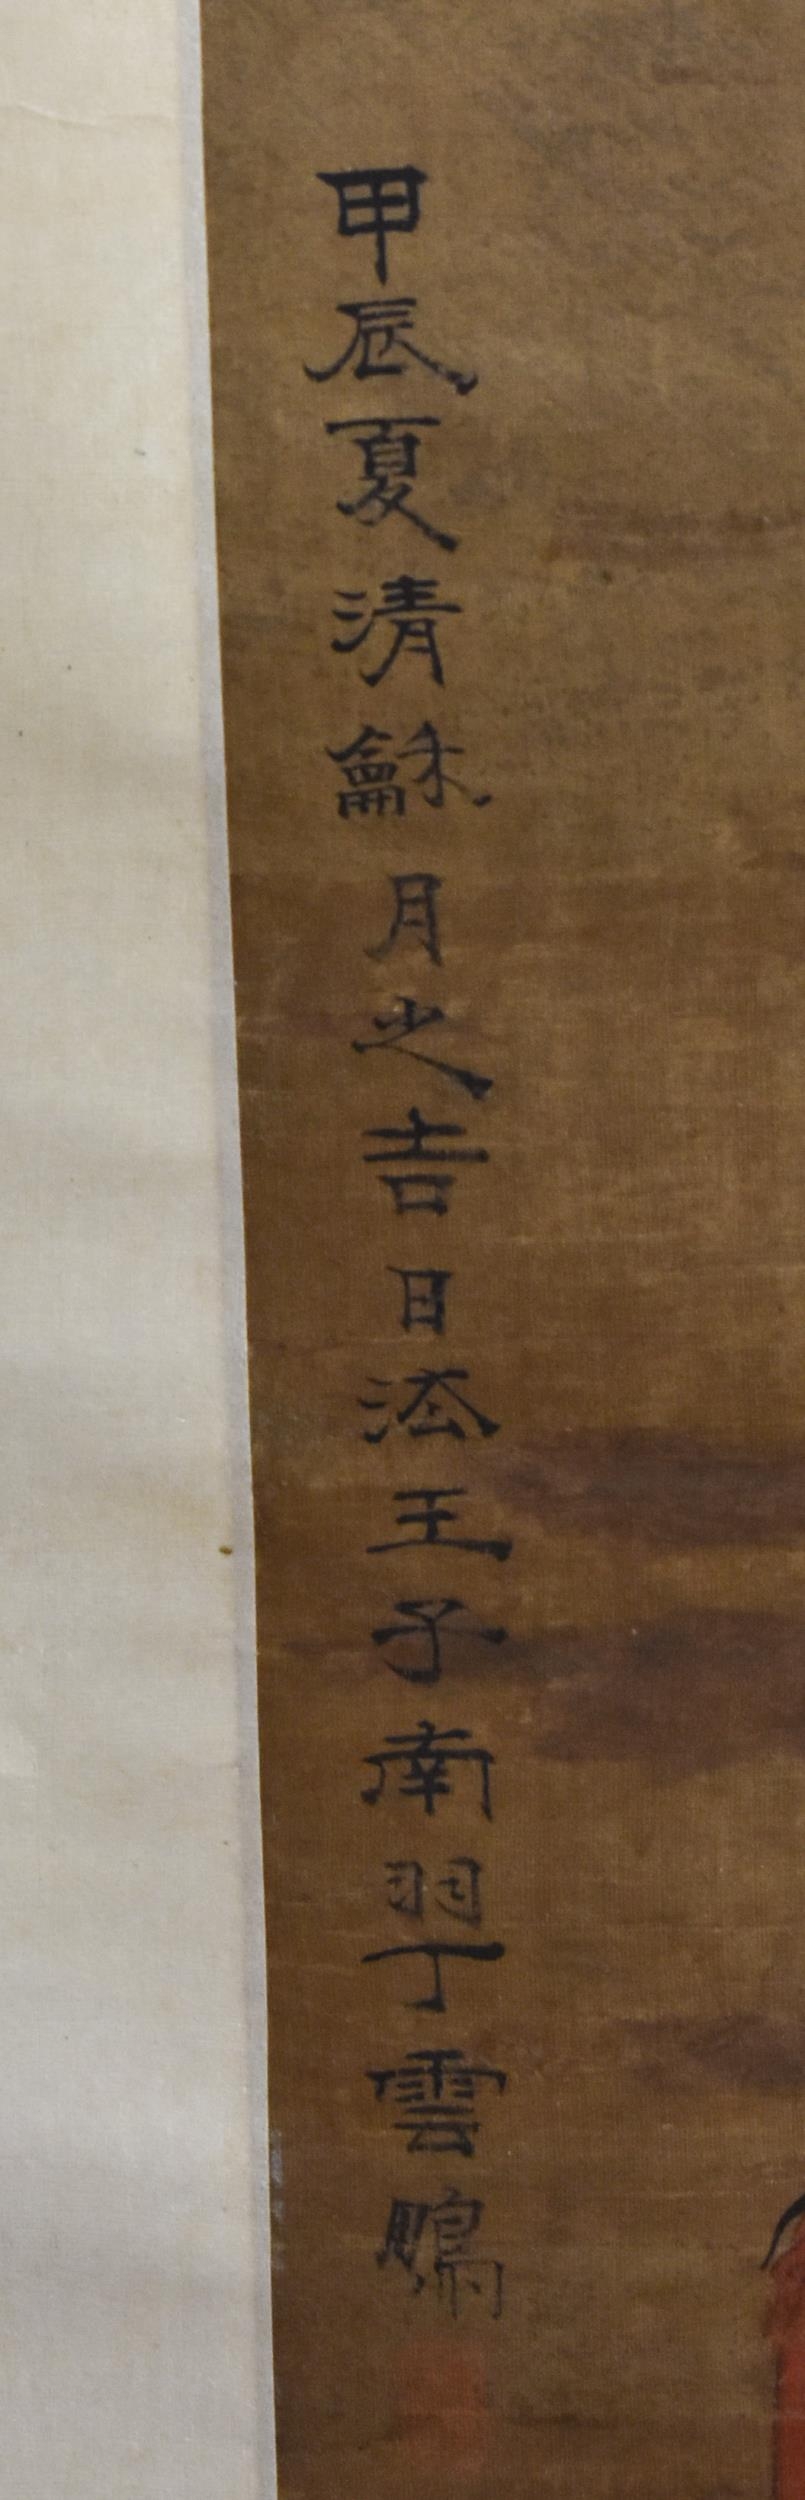 甲辰夏清龢月之吉日法王子南羽丁雲鵬